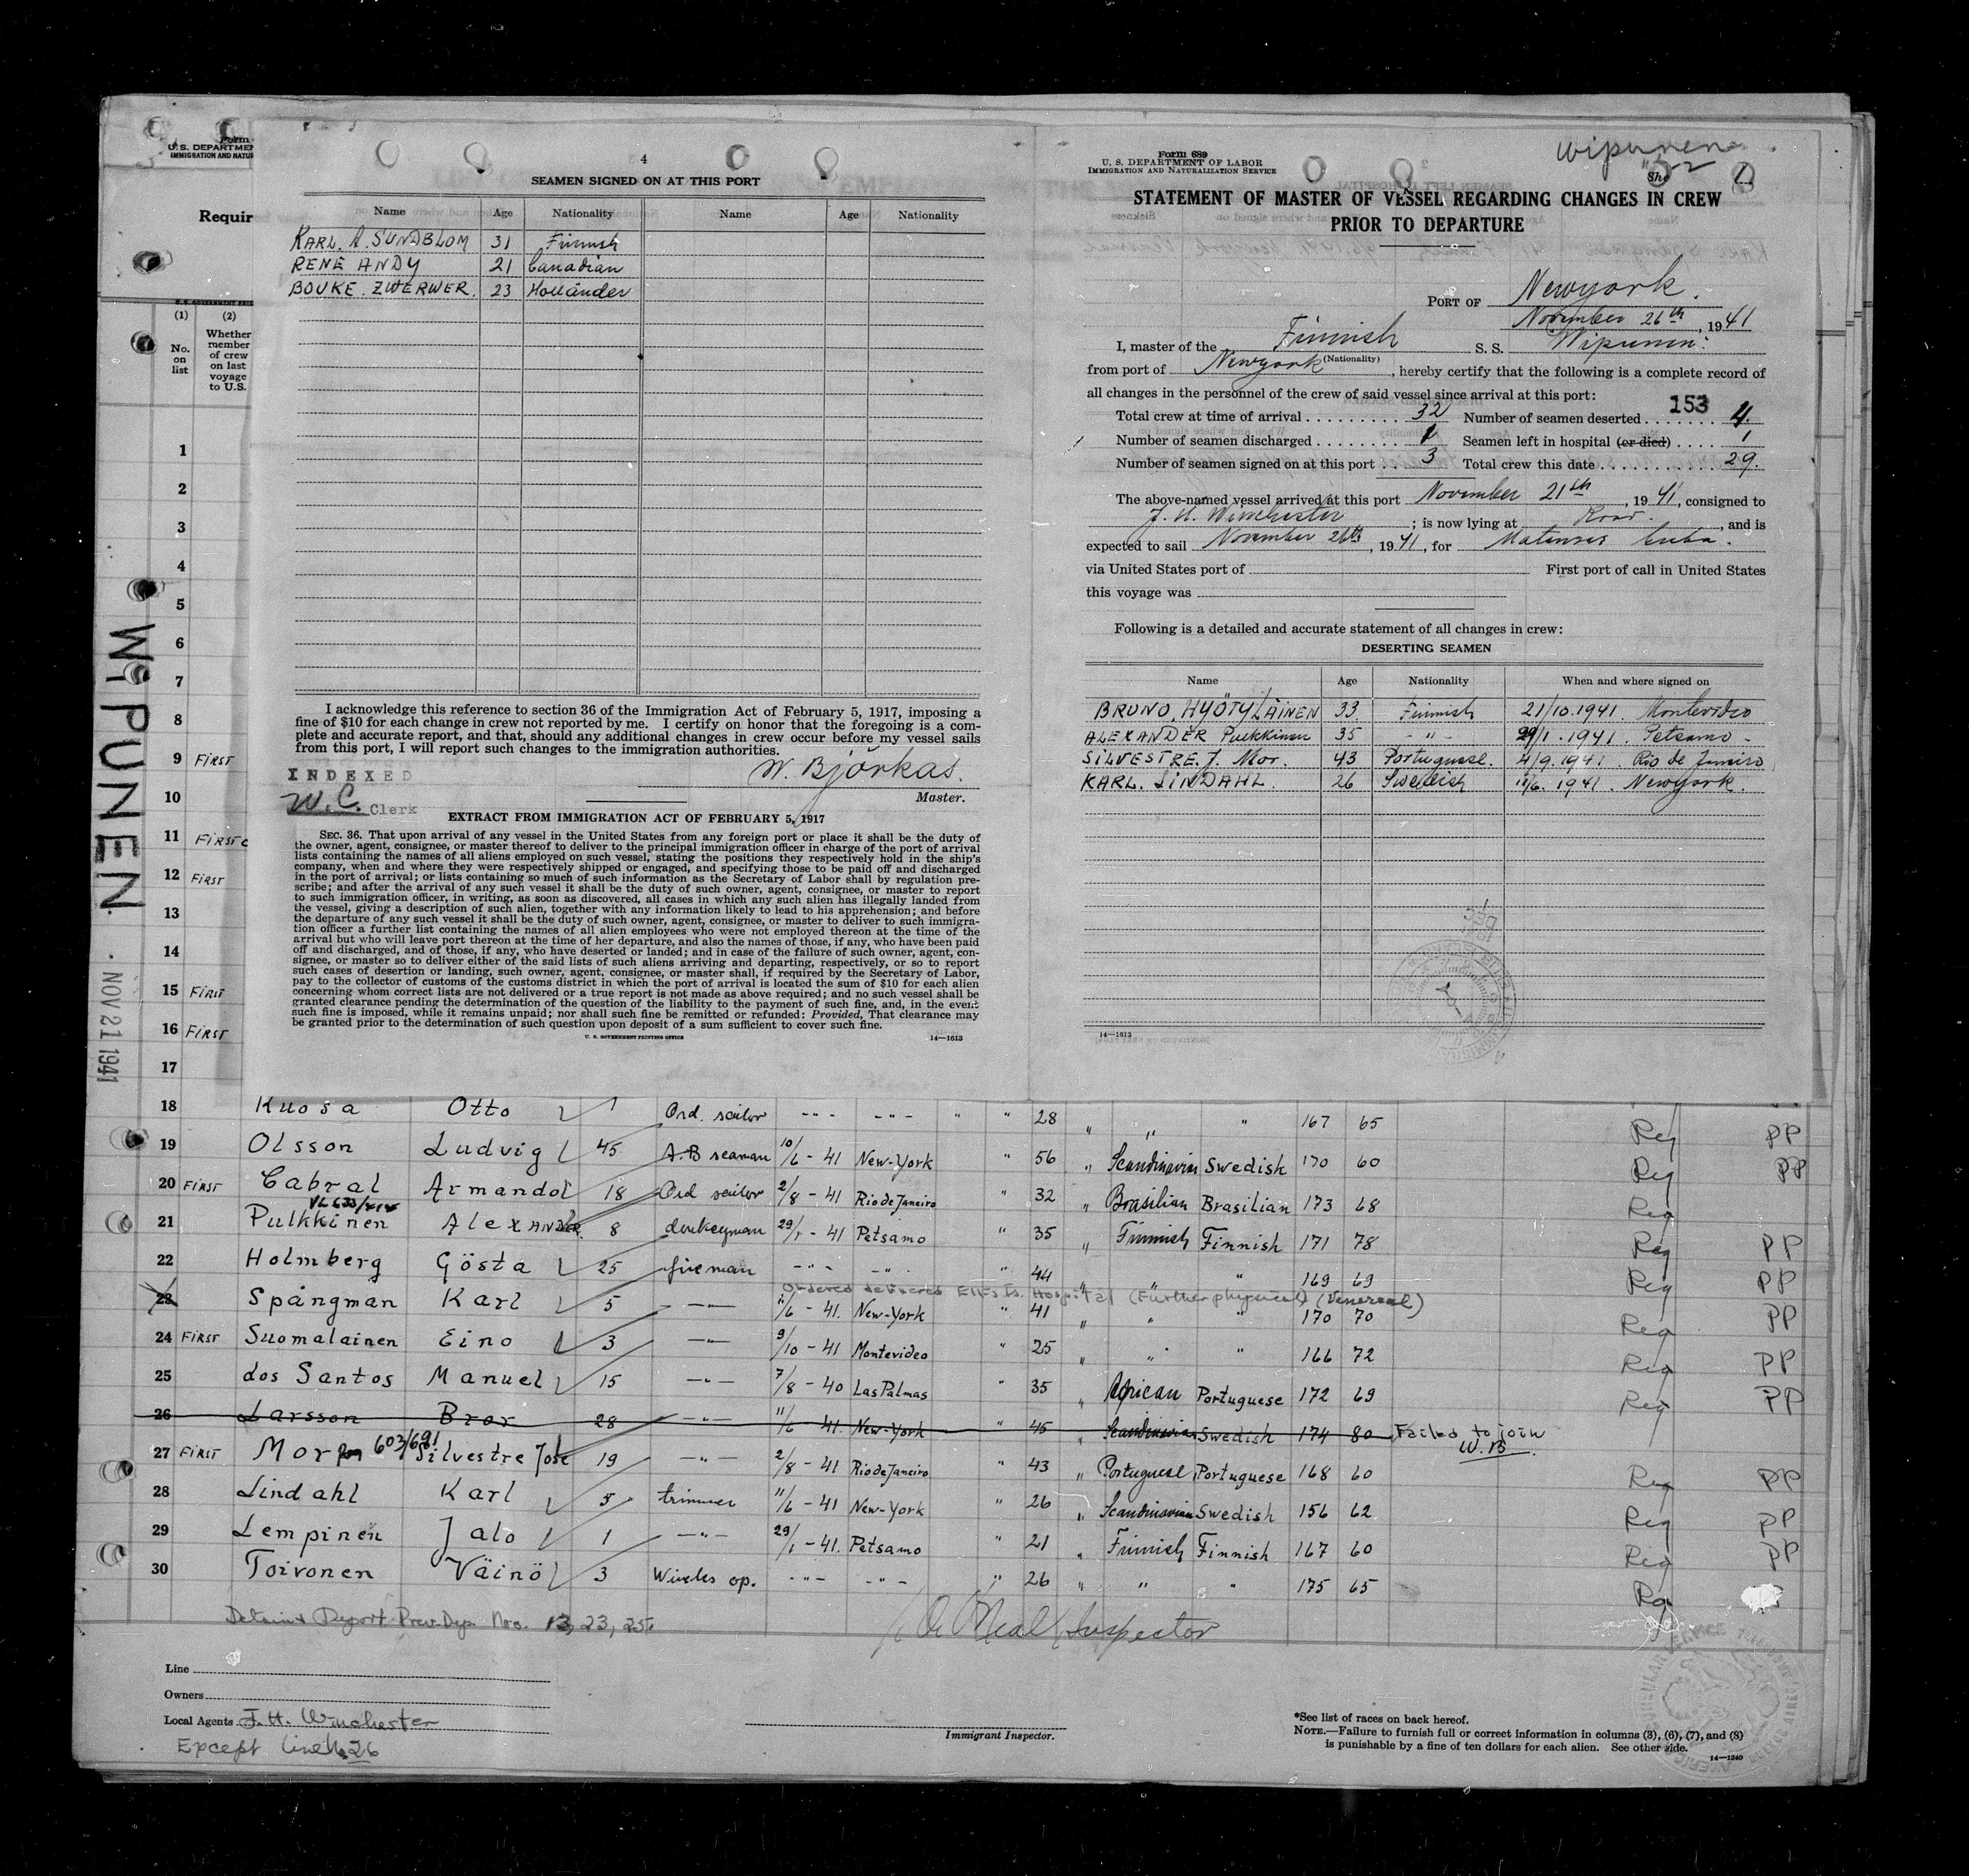 Form
U.S. DEPARTME
IMMIGRATION AND NATUR
Requir
U. S. GOVERNMENT PRI
(1) (2)
No. on list
Whether member of crew on last voyage to U.S.
1
2
3
4
5
6
7
8
9 FIRST
10
11 FIRST
12 FIRST
13
14
15 FIRST
16 FIRST
17
WIPUNEN
NOV 21 1941
4
SEAMEN SIGNED ON AT THIS PORT
Name Age Nationality Name Age Nationality
KARL. A. SUNDBLOM 31 Finnish
RENE ANDY 21 Canadian
BOUKE. ZWERWER. 23 Holländer
I acknowledge this reference to section 36 of the Immigration Act of February 5, 1917, imposing a
fine of $10 for each change in crew not reported by me. I certify on honor that the foregoing is a com-
plete and accurate report, and that, should any additional changes in crew occur before my vessel sails
from this port, I will report such changes to the immigration authorities.
W. Björkas.
INDEXED
W.C. Clerk
Master.
EXTRACT FROM IMMIGRATION ACT OF FEBRUARY 5, 1917
SEC. 36. That upon arrival of any vessel in the United States from any foreign port or place it shall be the duty of
the owner, agent, consignee, or master thereof to deliver to the principal immigration officer in charge of the port of arrival
lists containing the names of all aliens employed on such vessel, stating the positions they respectively hold in the ship's
company, when and where they were respectively shipped or engaged, and specifying those to be paid off and discharged
in the port of arrival; or lists containing so much of such information as the Secretary of Labor shall by regulation pre-
scribe; and after the arrival of any such vessel it shall be the duty of such owner, agent, consignee, or master to report
to such immigration officer, in writing, as soon as discovered, all cases in which any such alien has illegally landed from
the vessel, giving a description of such alien, together with any information likely to lead to his apprehension; and before
the departure of any such vessel it shall be the duty of such owner, agent, consignee, or master to deliver to such immigra-
tion officer a further list containing the names of all alien employees who were not employed thereon at the time of the
arrival but who will leave port thereon at the time of her departure, and also the names of those, if any, who have been paid
off and discharged, and of those, if any, who have deserted or landed; and in case of the failure of such owner, agent, con-
signee, or master so to deliver either of the said lists of such aliens arriving and departing, respectively, or so to report
such cases of desertion or landing, such owner, agent, consignee, or master shall, if required by the Secretary of Labor,
pay to the collector of customs of the customs district in which the port of arrival is located the sum of $10 for each alien
concerning whom correct lists are not delivered or a true report is not made as above required; and no such vessel shall be
granted clearance pending the determination of the question of the liability to the payment of such fine, and, in the event
such fine is imposed, while it remains unpaid; nor shall such fine be remitted or refunded: Provided, That clearance may
be granted prior to the determination of such question upon deposit of a sum sufficient to cover such fine.
U. S. GOVERNMENT PRINTING OFFICE 14—1613
Form 689
U. S. DEPARTMENT OF LABOR
IMMIGRATION AND NATURALIZATION SERVICE
Wipunen
STATEMENT OF MASTER OF VESSEL REGARDING CHANGES IN CREW
PRIOR TO DEPARTURE
PORT OF Newyork.
November 26th, 1941
I, master of the Finnish S. S. Wipunen
(Nationality)
from port of Newyork, hereby certify that the following is a complete record of
all changes in the personnel of the crew of said vessel since arrival at this port:
153
Total crew at time of arrival 32 Number of seamen deserted 4.
Number of seamen discharged 1 Seamen left in hospital (or died) 1
Number of seamen signed on at this port 3 Total crew this date 29.
The above-named vessel arrived at this port November 21th, 1941, consigned to
J. H. Winchester; is now lying at Road., and is
expected to sail November 26th, 1941, for Matanzas Cuba.
via United States port of First port of call in United States
this voyage was
Following is a detailed and accurate statement of all changes in crew:
DESERTING SEAMEN
Name Age Nationality When and where signed on
BRUNO. HYÖTYLÄINEN 33 Finnish 21/10.1941. Montevideo
ALEXANDER Pulkkinen 35 -"- 29/1.1941. Petsamo-
SILVESTRE. J. Mor. 43 Portuguese. 4/9.1941. Rio de Janeiro
KARL. LINDAHL. 26 Swedish 11/6.1941. Newyork.
14—1613
18 Kuosa Otto 1 Ord. sailor -"- -"- " " 28 " " " 167 65 Reg PP
19 Olsson Ludvig 45 A.B seaman 10/6-41 New-York " 56 " Scandinavian Swedish 170 60 Reg PP
20 FIRST Cabral Armando 18 Ord sailor 2/8-41 Rio de Janeiro " 32 " Brasilian Brasilian 173 68 Reg
21 Pulkkinen Alexander 8 donkeyman 29/1-41 Petsamo " 35 " Finnish Finnish 171 78 Reg PP
22 Holmberg Gösta 25 fireman -"- -"- " 44 " " " 169 69 Reg PP
Ordered delivered Ellis Is. Hospital (Further physical) (Venereal)
23 Spångman Karl 5 -"- 11/6-41. New-York " 41 " " " 170 70 Reg PP
24 FIRST Suomalainen Eino 3 -"- 9/10-41 Montevideo " 25 " " " 166 72 Reg PP
25 dos Santos Manuel 15 -"- 7/8-40 Las Palmas " 35 " African Portuguese 172 69 Reg PP
26 Larsson Bror 28 -"- 11/6 41. New-York " 45 " Scandinavian Swedish 174 80 Failed to join
W.B.
603/691
27 FIRST Mor Silvestre José 19 -"- 2/8-41 Rio de Janeiro " 43 " Portuguese Portuguese 168 60 Reg PP
28 Lindahl Karl 5 trimmer 11/6-41 New-York " 26 " Scandinavian Swedish 156 62 Reg PP
29 Lempinen Jalo 1 -"- 29/1-41. Petsamo " 21 " Finnish Finnish 167 60 Reg PP
30 Toivonen Väinö 3 Wireles op. -"- -"- " 26 " " " 175 65 Reg
Detain & Report Prev. Dep. Nos. 13, 23, 25.
O'Neal Inspector
Line
Owners
Local Agents J. H. Winchester
Except line No 26
Immigrant Inspector.
*See list of races on back hereof.
NOTE.—Failure to furnish full or correct information in columns (3), (6), (7), and (8)
is punishable by a fine of ten dollars for each alien. See other side.
14—1240